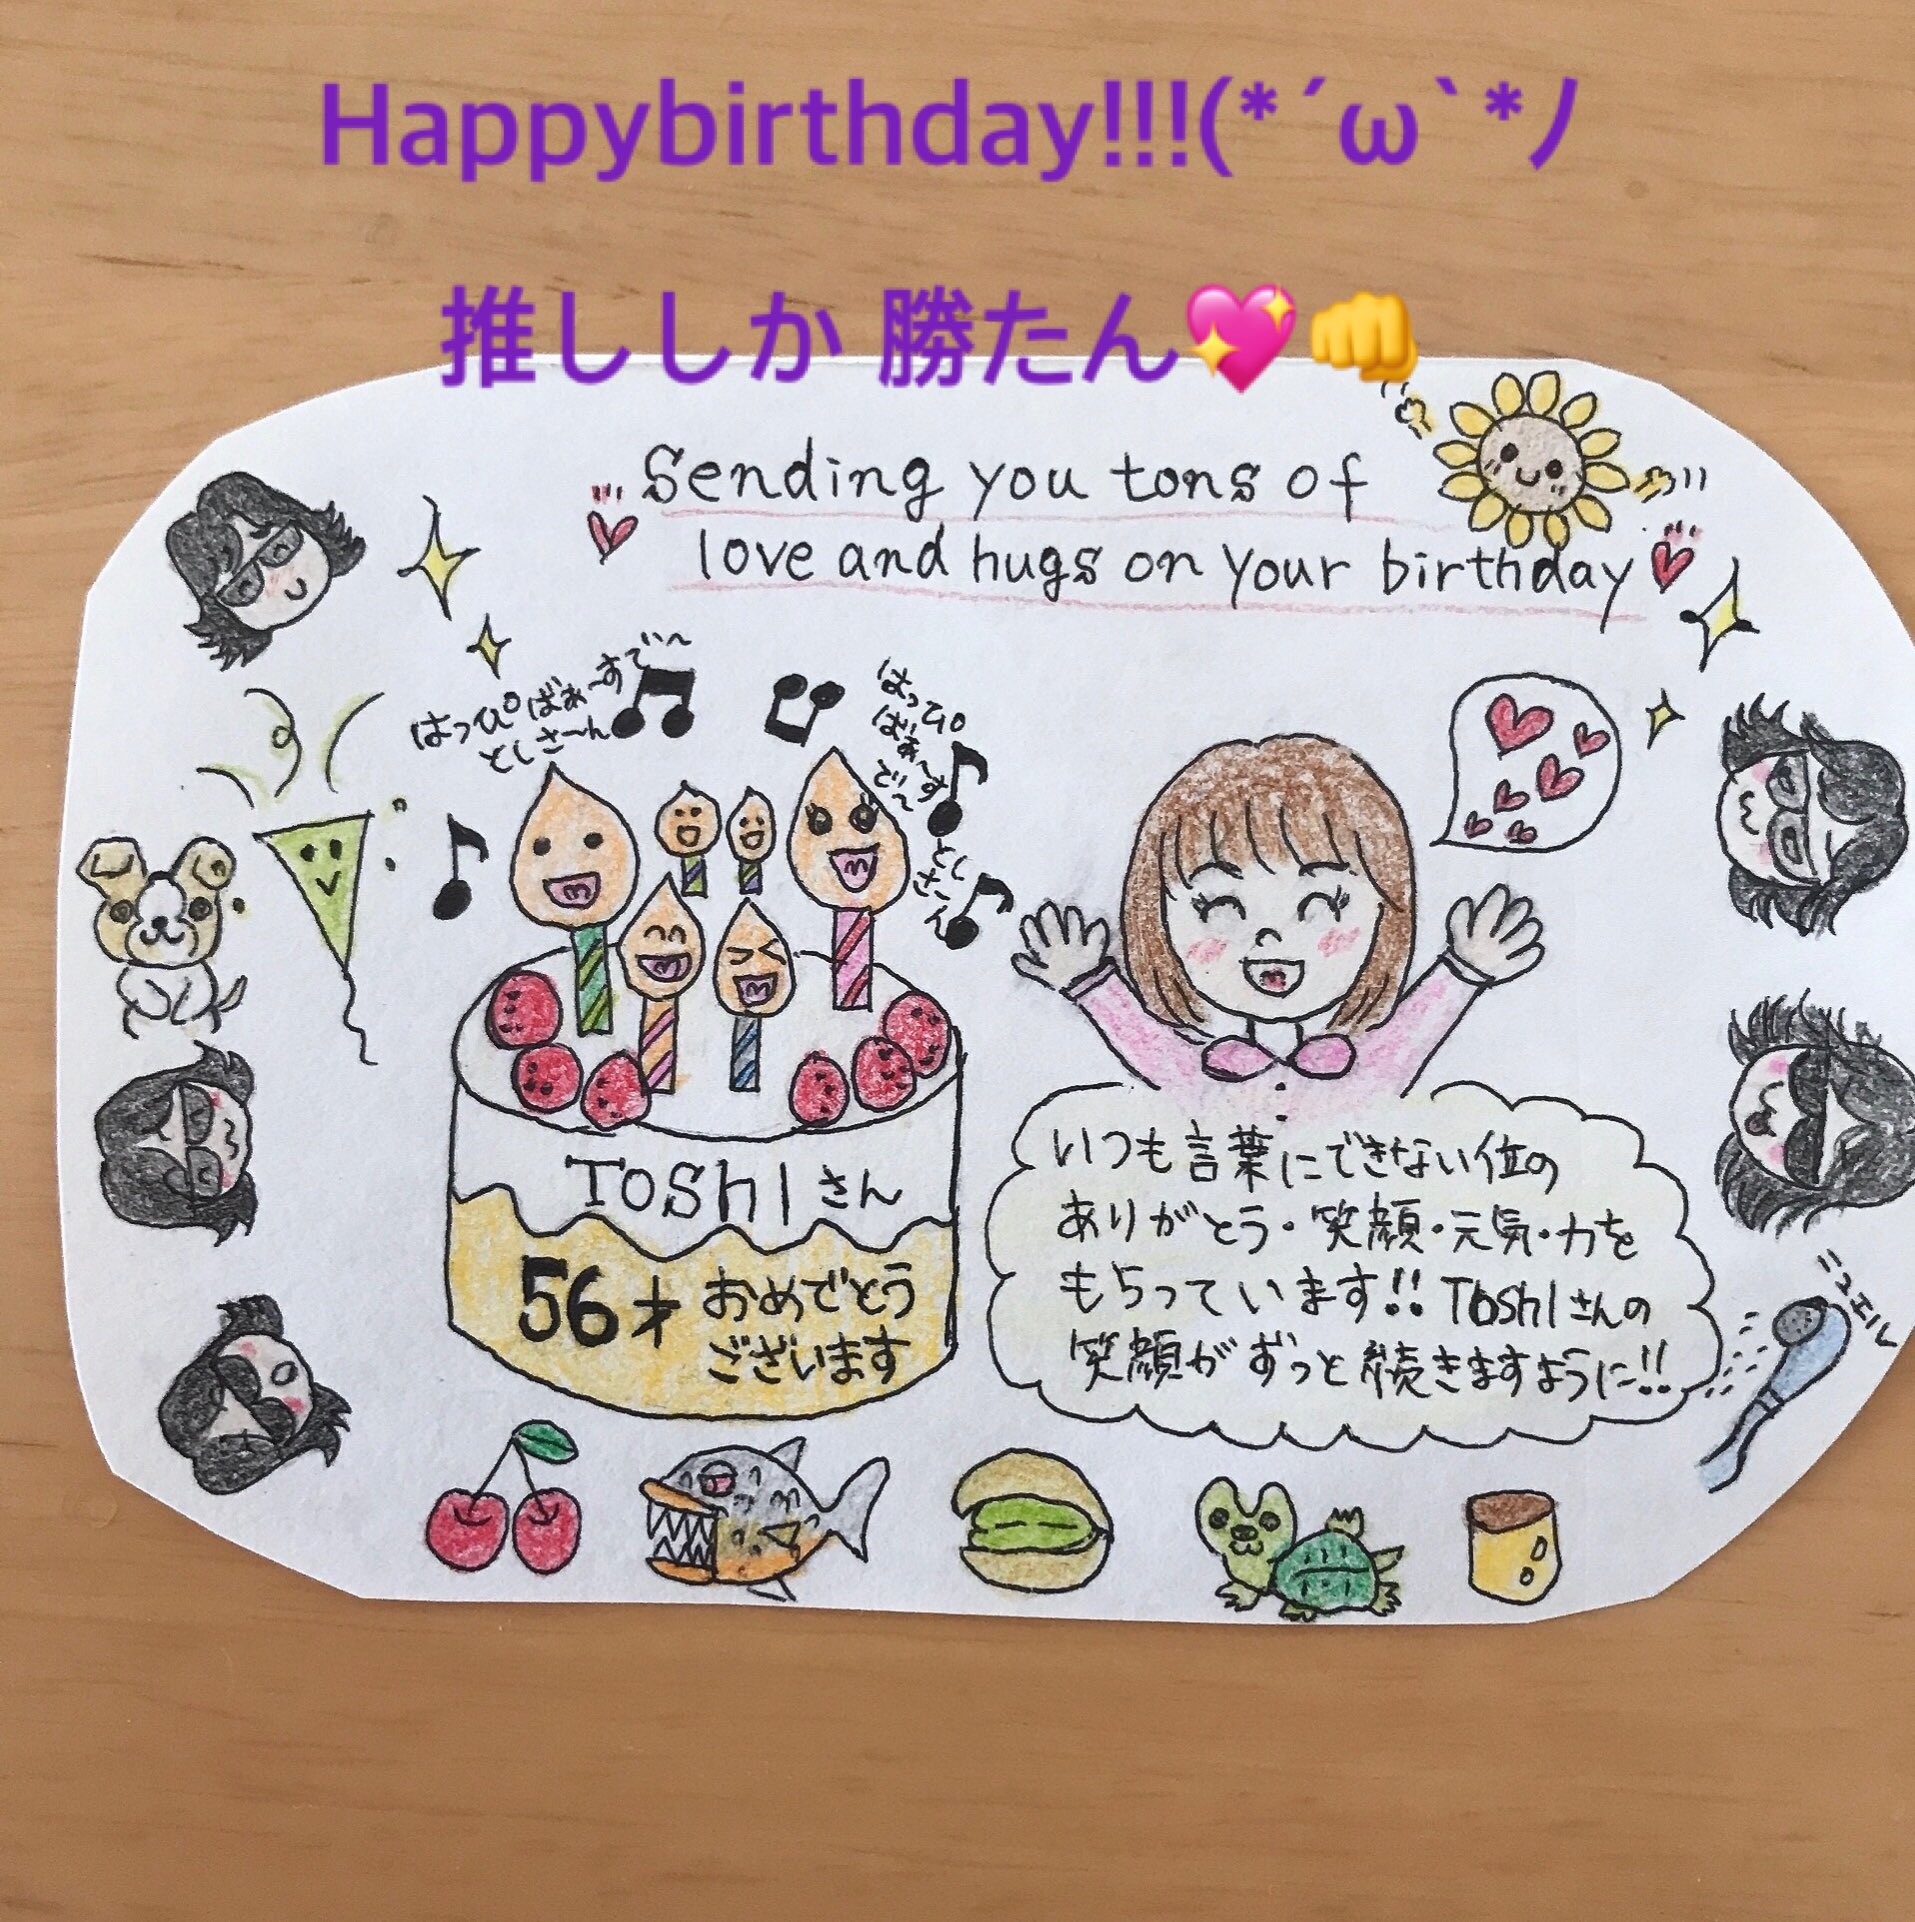 Happybirthday!!!(*´ω`*ﾉ
推ししか 勝たん💖👊
Sending you tons of
love and hugs on your birthday
はっぴばぁ〜すで〜
としさ〜ん
はっぴ
ばぁ〜す
で〜
とし
さ〜ん
TOSHIさん
56才 おめでとう
ございます
いつも言葉にできない位の
ありがとう・笑顔・元気・力を
もらっています!! ToshIさんの
笑顔がずっと続きますように!!
ニュエル